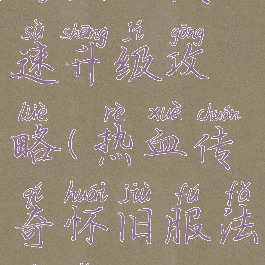 sù shēng jí gōng
速升级攻
lüè rè xuè chuán
略(热血传
qí huái jiù fú fǎ
奇怀旧服法